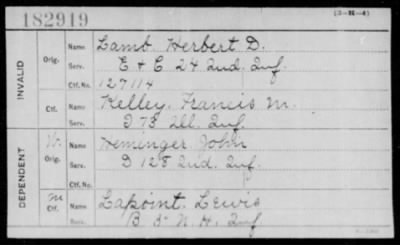 182919
(3-H-4)
INVALID
Orig.
Name Lamb, Herbert D.
Serv. E & C 24 Ind. Inf.
Ctf. No. 127114
Ctf.
Name Kelley, Francis M.
Serv. I 78 Ill. Inf.
DEPENDENT
W.
Orig.
Name Heminger John
Serv. D 128 Ind. Inf.
Ctf. No.
M
Ctf.
Name Lapoint, Lewis
Serv. B 5 N. H. Inf